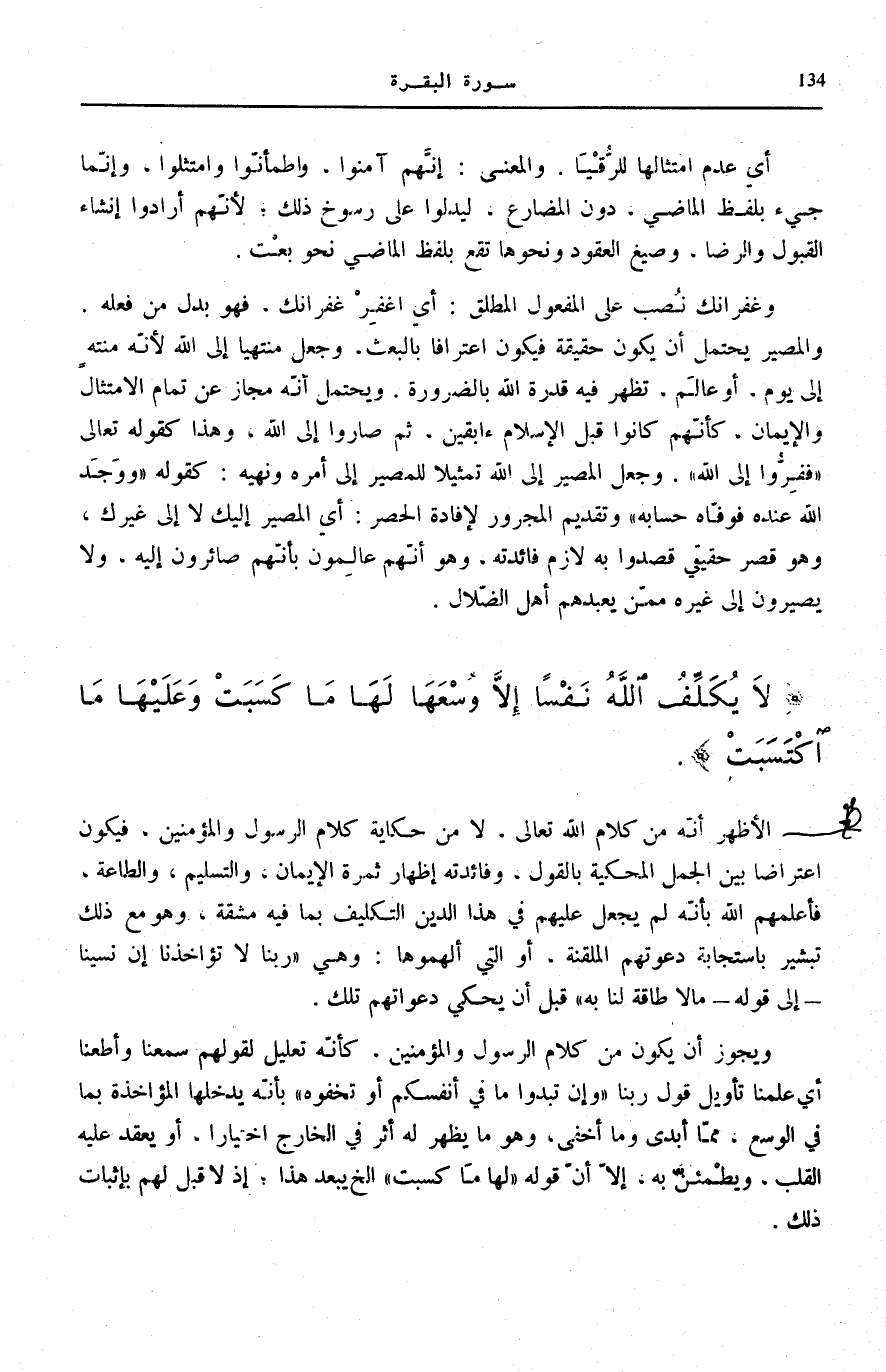 134
سـورة البقـرة
أي عدم امتثالها للرُّقْيَا . والمعنـى : إنَّهم آمنوا . واطمأنّوا وامتثلوا ، وإنّما
جـيء بلفـظ الماضـي ، دون المضارع ، ليدلوا على رسوخ ذلك ؛ لأنّهم أرادوا إنشاء
القبول والرضا ، وصيغ العقود ونحوها تقع بلفظ الماضـي نحو بعْت .
وغفرانك نُصب على المفعول المطلق : أي اغفـرْ غفرانك . فهو بدل من فعله .
والمصير يحتمل أن يكون حقيقة فيكون اعترافا بالبعث . وجعل منتهيا إلى الله لأنّه منته
إلى يوم ، أو عالَم ، تظهر فيه قدرة الله بالضرورة . ويحتمل أنّه مجاز عن تمام الامتثال
والإيمان ، كأنّهم كانوا قبل الإسلام ءابقين ، ثم صاروا إلى الله ، وهذا كقوله تعالى
«ففـرُّوا إلى الله» . وجعل المصير إلى الله تمثيلا للمصير إلى أمره ونهيه : كقوله «ووَجَـد
الله عنده فوفّاه حسابه» وتقديم المجرور لإفادة الحصر : أي المصير إليك لا إلى غيرك ،
وهو قصر حقيقي قصدوا به لازم فائدته ، وهو أنّهم عالـمون بأنّهم صائرون إليه ، ولا
يصيرون إلى غيره ممّن يعبدهم أهل الضّلال .
﴿ لاَ يُكَلِّفُ ٱللَّهُ نَـفْسًا إِلاَّ وُسْعَهَا لَهَـا مَـا كَسَبَتْ وَعَلَيْهَـا مَـا
ٱكْتَسَبَتْ ﴾ .
الأظهر أنّه من كلام الله تعالى ، لا من حـكاية كلام الرسول والمؤمنين ، فيكون
اعتراضا بين الجمل المحـكية بالقول ، وفائدته إظهار ثمرة الإيمان ، والتسليم ، والطاعة ،
فأعلمهم الله بأنّه لم يجعل عليهم في هذا الدين التـكليف بما فيه مشقة ، وهو مع ذلك
تبشير باستجابة دعوتهم الملقنة ، أو التي ألهموها : وهـي «ربنا لا تؤاخذنا إن نسينا
– إلى قوله – مالا طاقة لنا به» قبل أن يحـكي دعواتهم تلك .
ويجوز أن يكون من كلام الرسول والمؤمنين ، كأنّه تعليل لقولهم سمعنا وأطعنا
أي علمنا تأويل قول ربنا «وإن تبدوا ما في أنفسـكم أو تخفوه» بأنّه يدخلها المؤاخذة بما
في الوسع ، ممّا أبدى وما أخفى ، وهو ما يظهر له أثر في الخارج اختيارا ، أو يعقد عليه
القلب ، ويطْمئنّ به ، إلاّ أنّ قوله «لها مـا كسبت» الخ يبعد هذا ؛ إذ لا قبل لهم بإثبات
ذلك .